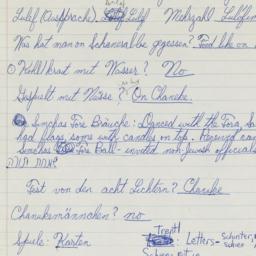 Lulef (Aussprache). Lulef Mehrzahl Lulofim
Was hat man on Schanerabbe gegessen? Food like on
Kohl/kraut mit Wasser? No
Gespielt mit Nüsse? On Chanike.
Simches Tore Bräuche: Danced with the Tora, S
had flags, some with candles on top. Rescued can
Simches Tore Ball - invited non-Jewish officials
שמחת תורה
Fest von den acht Lichtern? Chanike
Chanikemännchen? no
Spiele: Karten Trentl Letters-